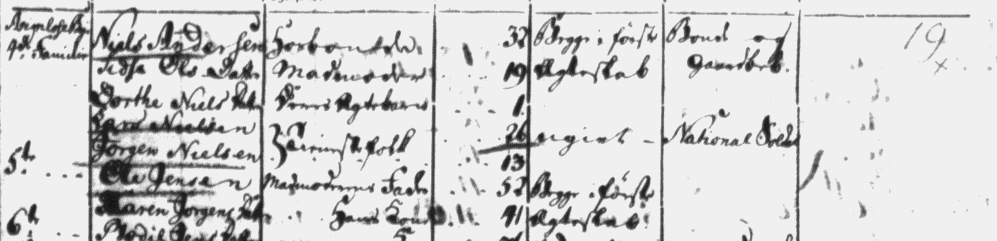 Niels Andersen Hosbonde 32 Begge i første Bonde og 19
4de Familie
Sidse Ols Datter Madmoder 19 Ægteskab Gaardbeb.
Dorthe Niels Datter Deres Ægtebarn 1
Lars Nielsen 26 ugivt - National Soldat
Jørgen Nielsen Tienistefolk 13
5te
Ole Jensen Madmoderens Fader 52 Begge i første
Karen Jørgens Datter Hans Kone 41 Ægteskab
6te
Bodil